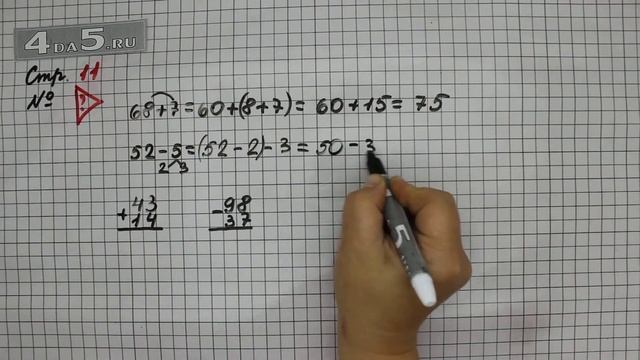 4DA5.RU
Стр. 11
№ ?
68+7=60+(8+7)=60+15=75
52-5=(52-2)-3=50-3
2 3
43
+14
98
-37
5